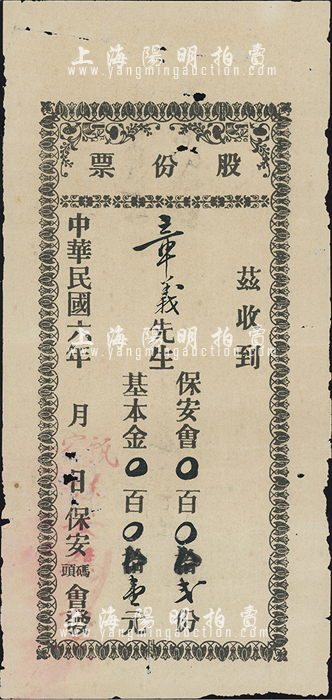 上海陽明拍賣
www.yangmingauction.com
股份票
茲收到
章義先生
保安會0百0拾弍份
基本金0百0拾壹元
中華民國六年 月 日保安碼頭會發
上海陽明拍賣
www.yangmingauction.com
上海陽明拍賣
www.yangmingauction.com